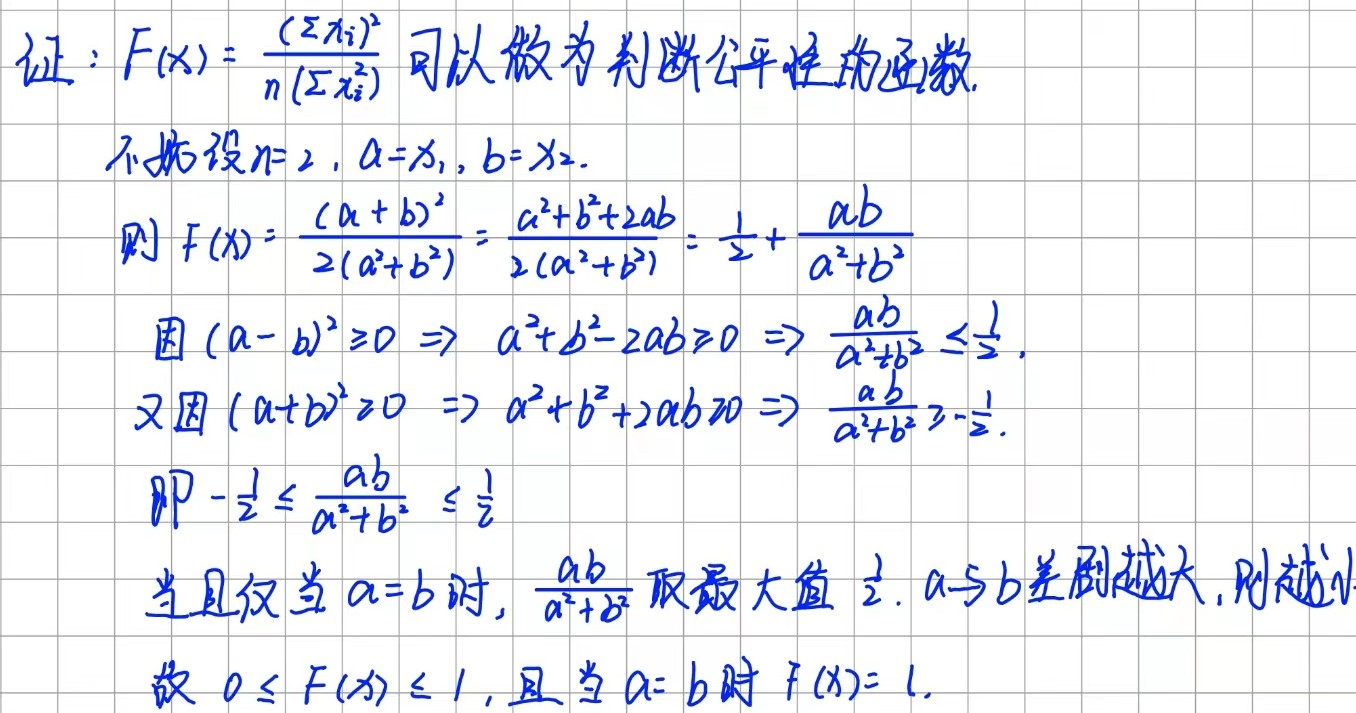 证：F(x) = (Σxᵢ)² / n(Σxᵢ²) 可以做为判断公平性的函数.
不妨设n=2，a=x₁，b=x₂.
则 F(x) = (a+b)² / 2(a²+b²) = a²+b²+2ab / 2(a²+b²) = 1/2 + ab / a²+b²
因 (a-b)² ≥0 ⇒ a²+b²-2ab≥0 ⇒ ab / a²+b² ≤ 1/2，
又因 (a+b)² ≥0 ⇒ a²+b²+2ab≥0 ⇒ ab / a²+b² ≥ -1/2.
即 -1/2 ≤ ab / a²+b² ≤ 1/2
当且仅当 a=b 时，ab / a²+b² 取最大值 1/2. a与b差别越大，则越小
故 0 ≤ F(x) ≤ 1，且当 a=b 时 F(x)=1.